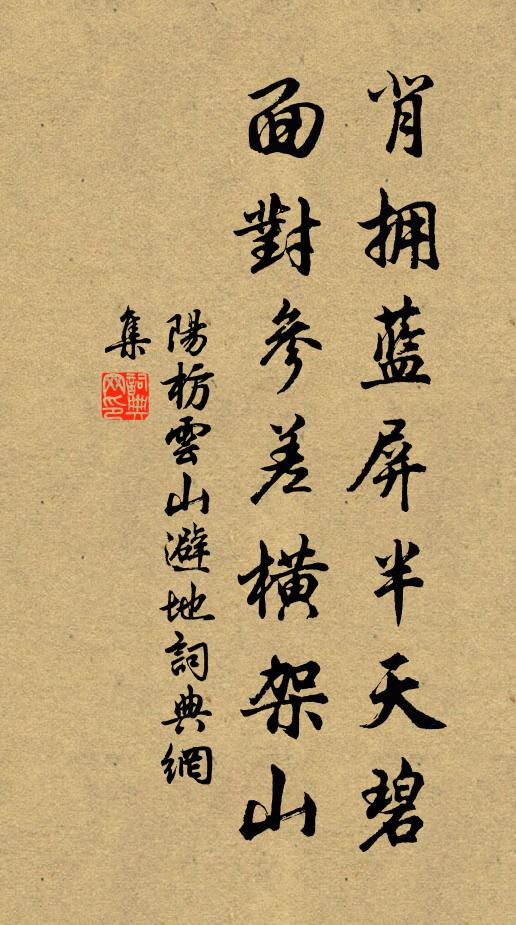 背拥藍屏半天碧
面對參差橫架山
陽枋雲山避地詞典網
集
詞典
网印